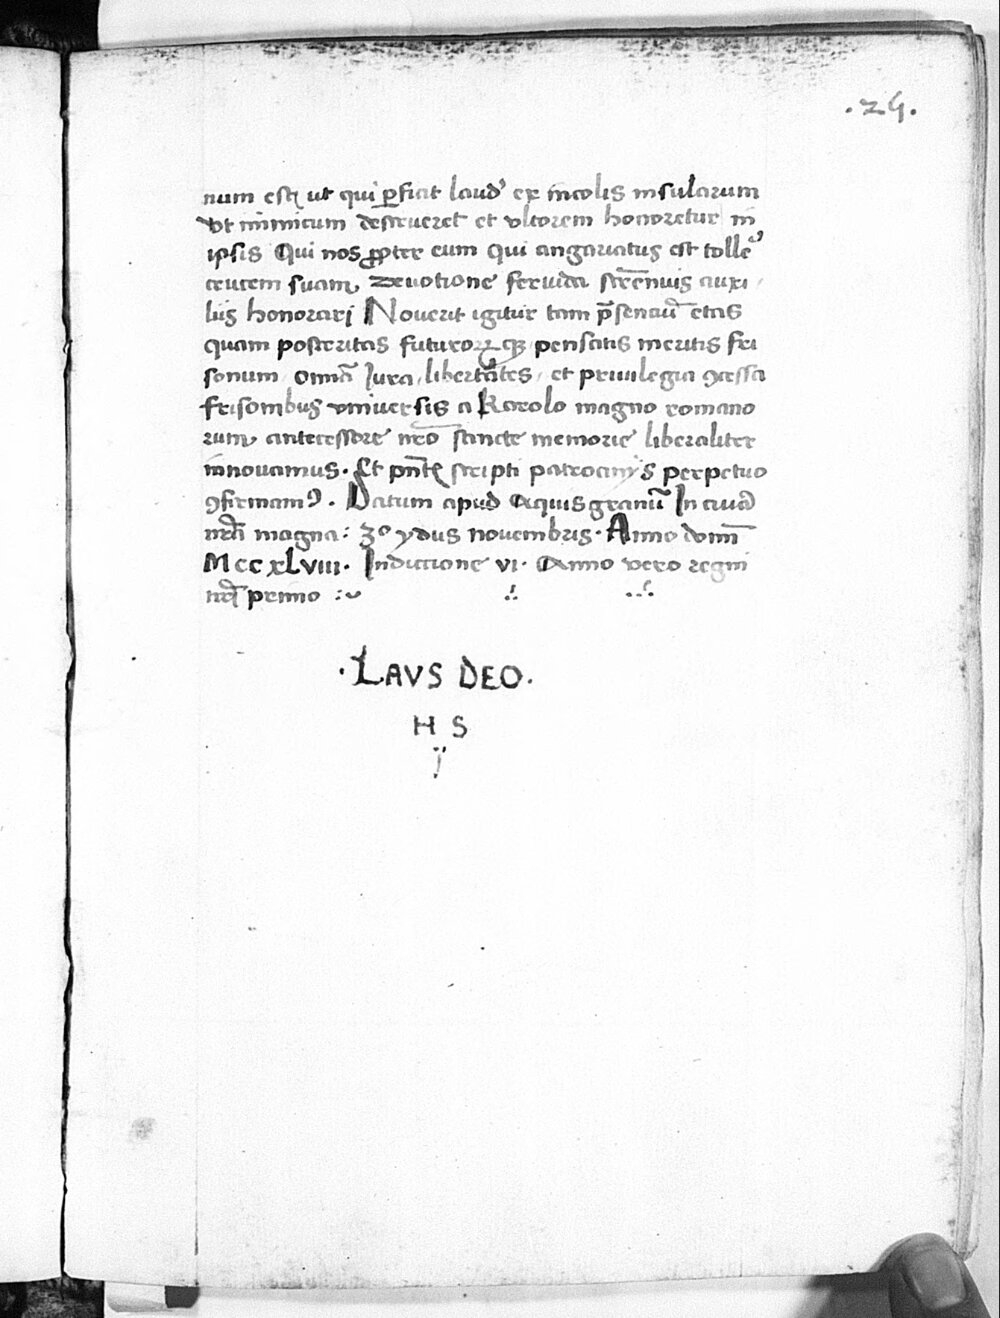 .24.
num est ut qui ꝑficiat laud' ex incolis insularum
vt inimicum destrueret et vltorem honoretur in
ipsis Qui nos ꝓpter eum qui angariatus est tolle'
crucem suam, Deuotione feruida strēnuis auxi
liis honorari Nouerit igitur tam p̄senciū etas
quam posteritas futuroꝝ qꝫ pensatis meritis fri
sonum omnā Iura, libertates, et priuilegia ꝯcessa
frisonibus vniuersis a Karolo magno romano
rum antecessore nr̄o sancte memorie liberaliter
innouamus. Et pn̄tis scripti patrocinijs perpetuo
ꝯfirmamꝰ. Datum apud Aquisgranū In ciuā
nr̄a magna: 3º ydus nouembris. Anno domī
MccxLviii. Indictione vi. Anno vero regni
nr̄i primo :~ .: ...
.LAVS DEO.
H S
ÿ